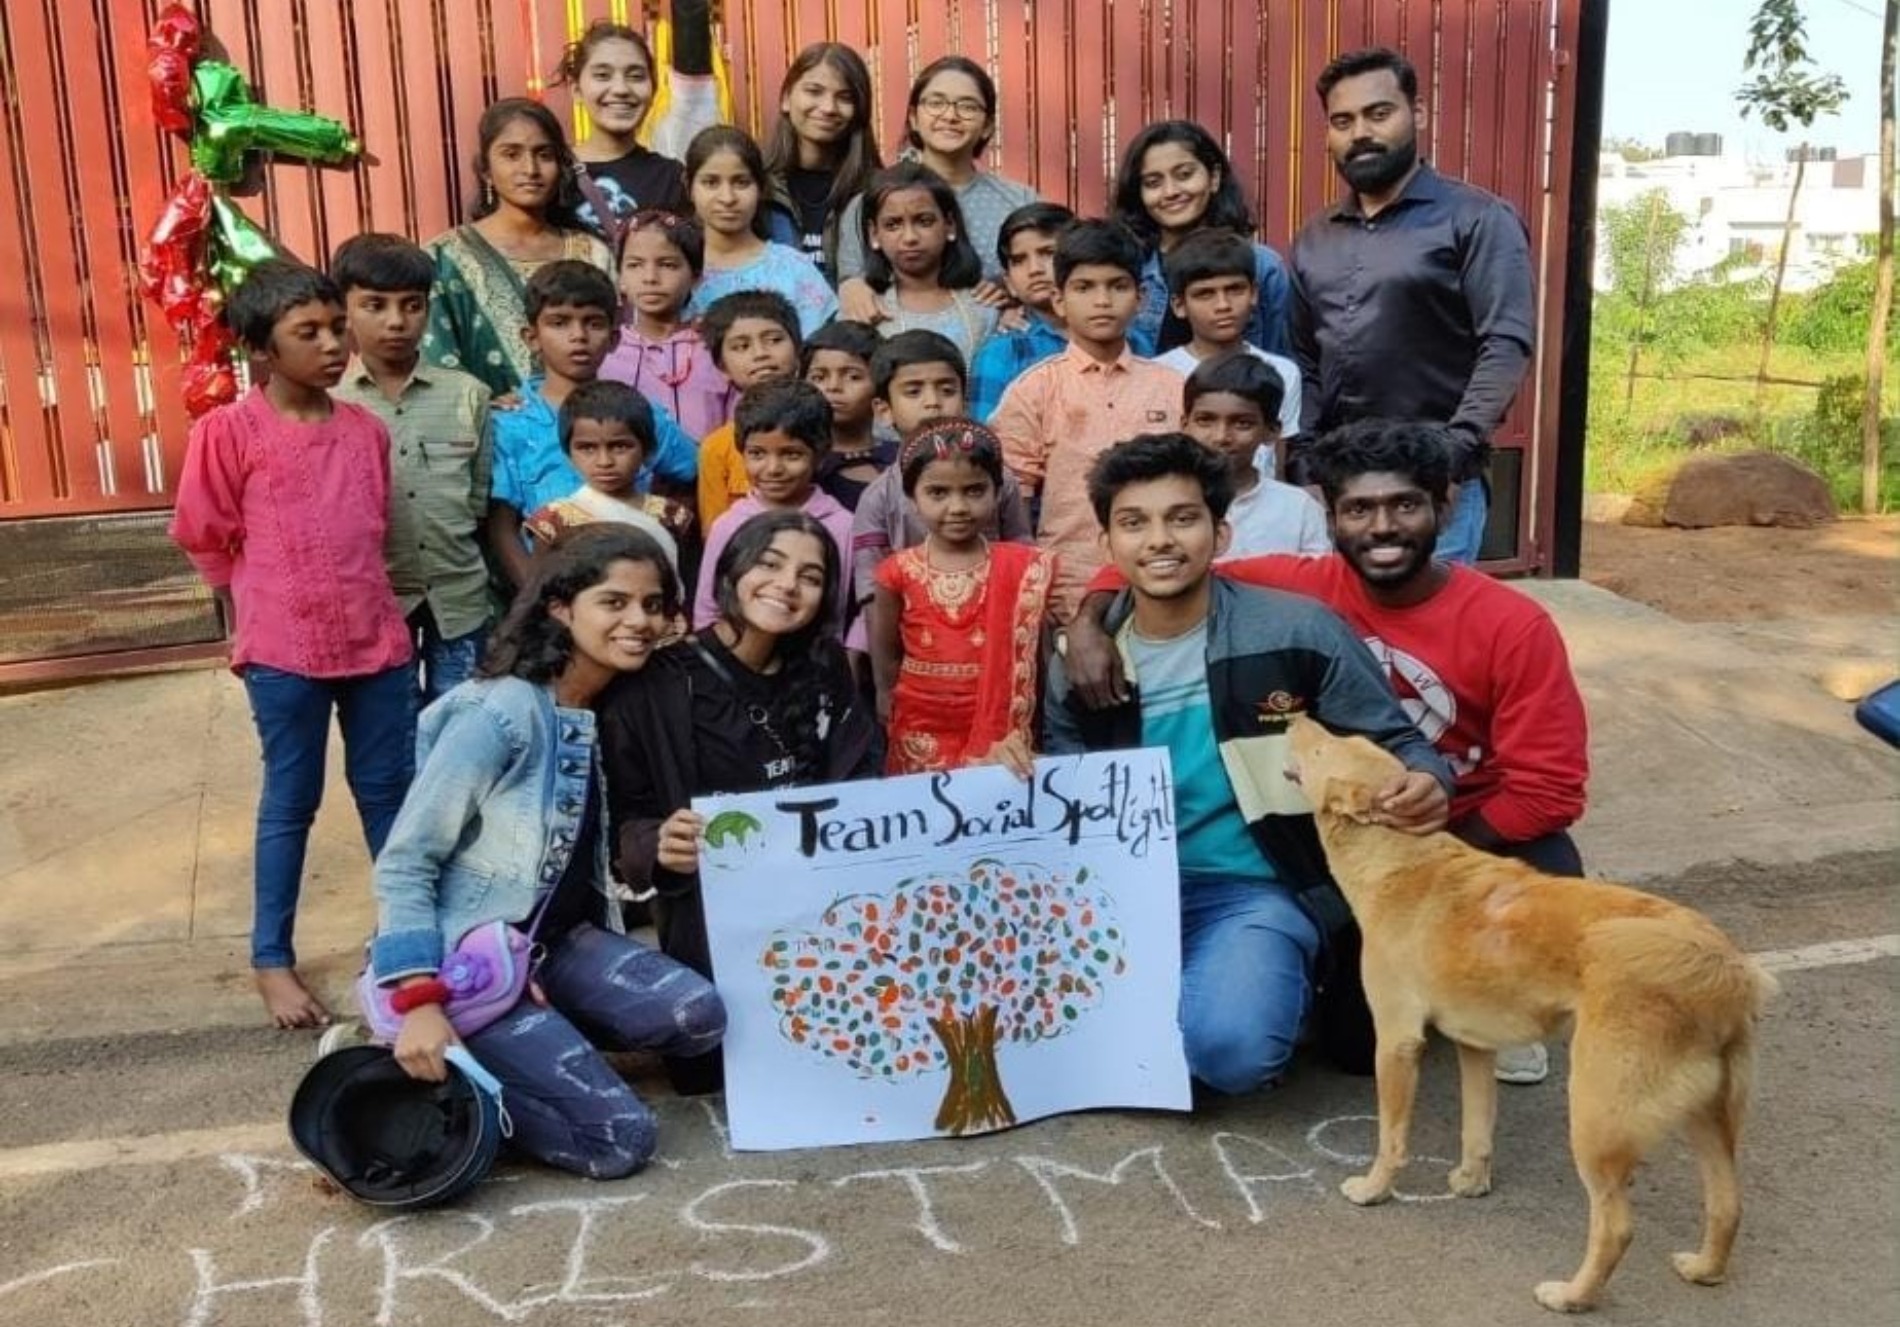 Team Social Spotlight
TEAM
CHRISTMAS